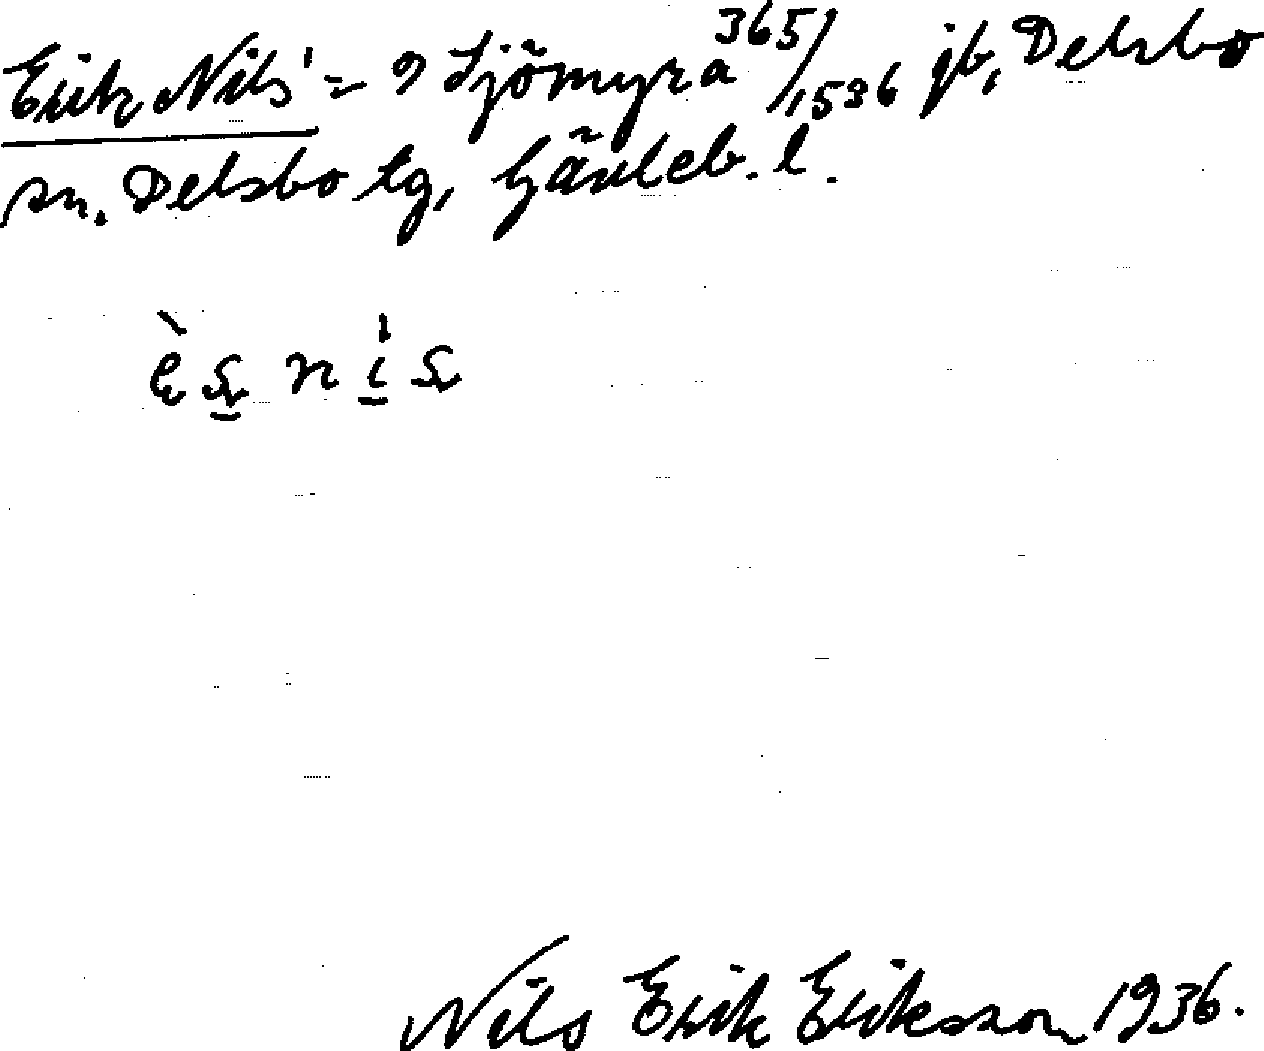 Erik Nils' = 9 Sjömyra 365/1536 jb, Delsbo
sn. Delsbo tg, Gävleb. l.
Nils Erik Eriksson 1936.